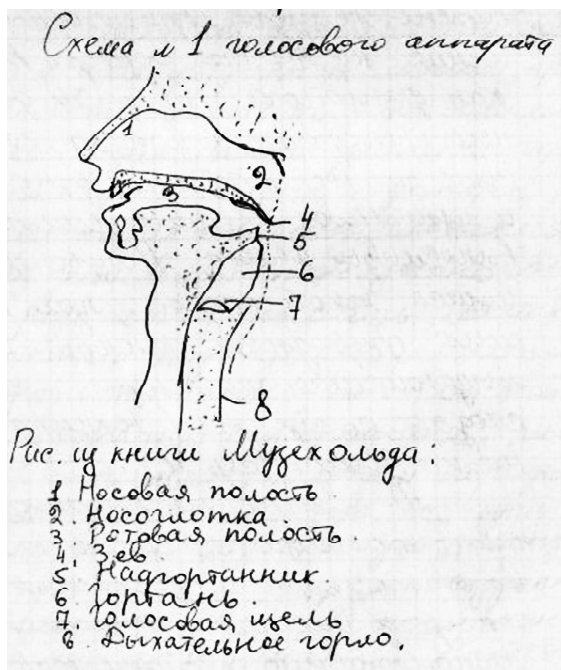 Схема № 1 голосового аппарата
1
2
3
4
5
6
7
8
Рис. из книги Музехольда.
1. Носовая полость
2. Носоглотка.
3. Ротовая полость
4. Зев.
5. Надгортанник.
6. Гортань.
7. Голосовая щель
8. Дыхательное горло.